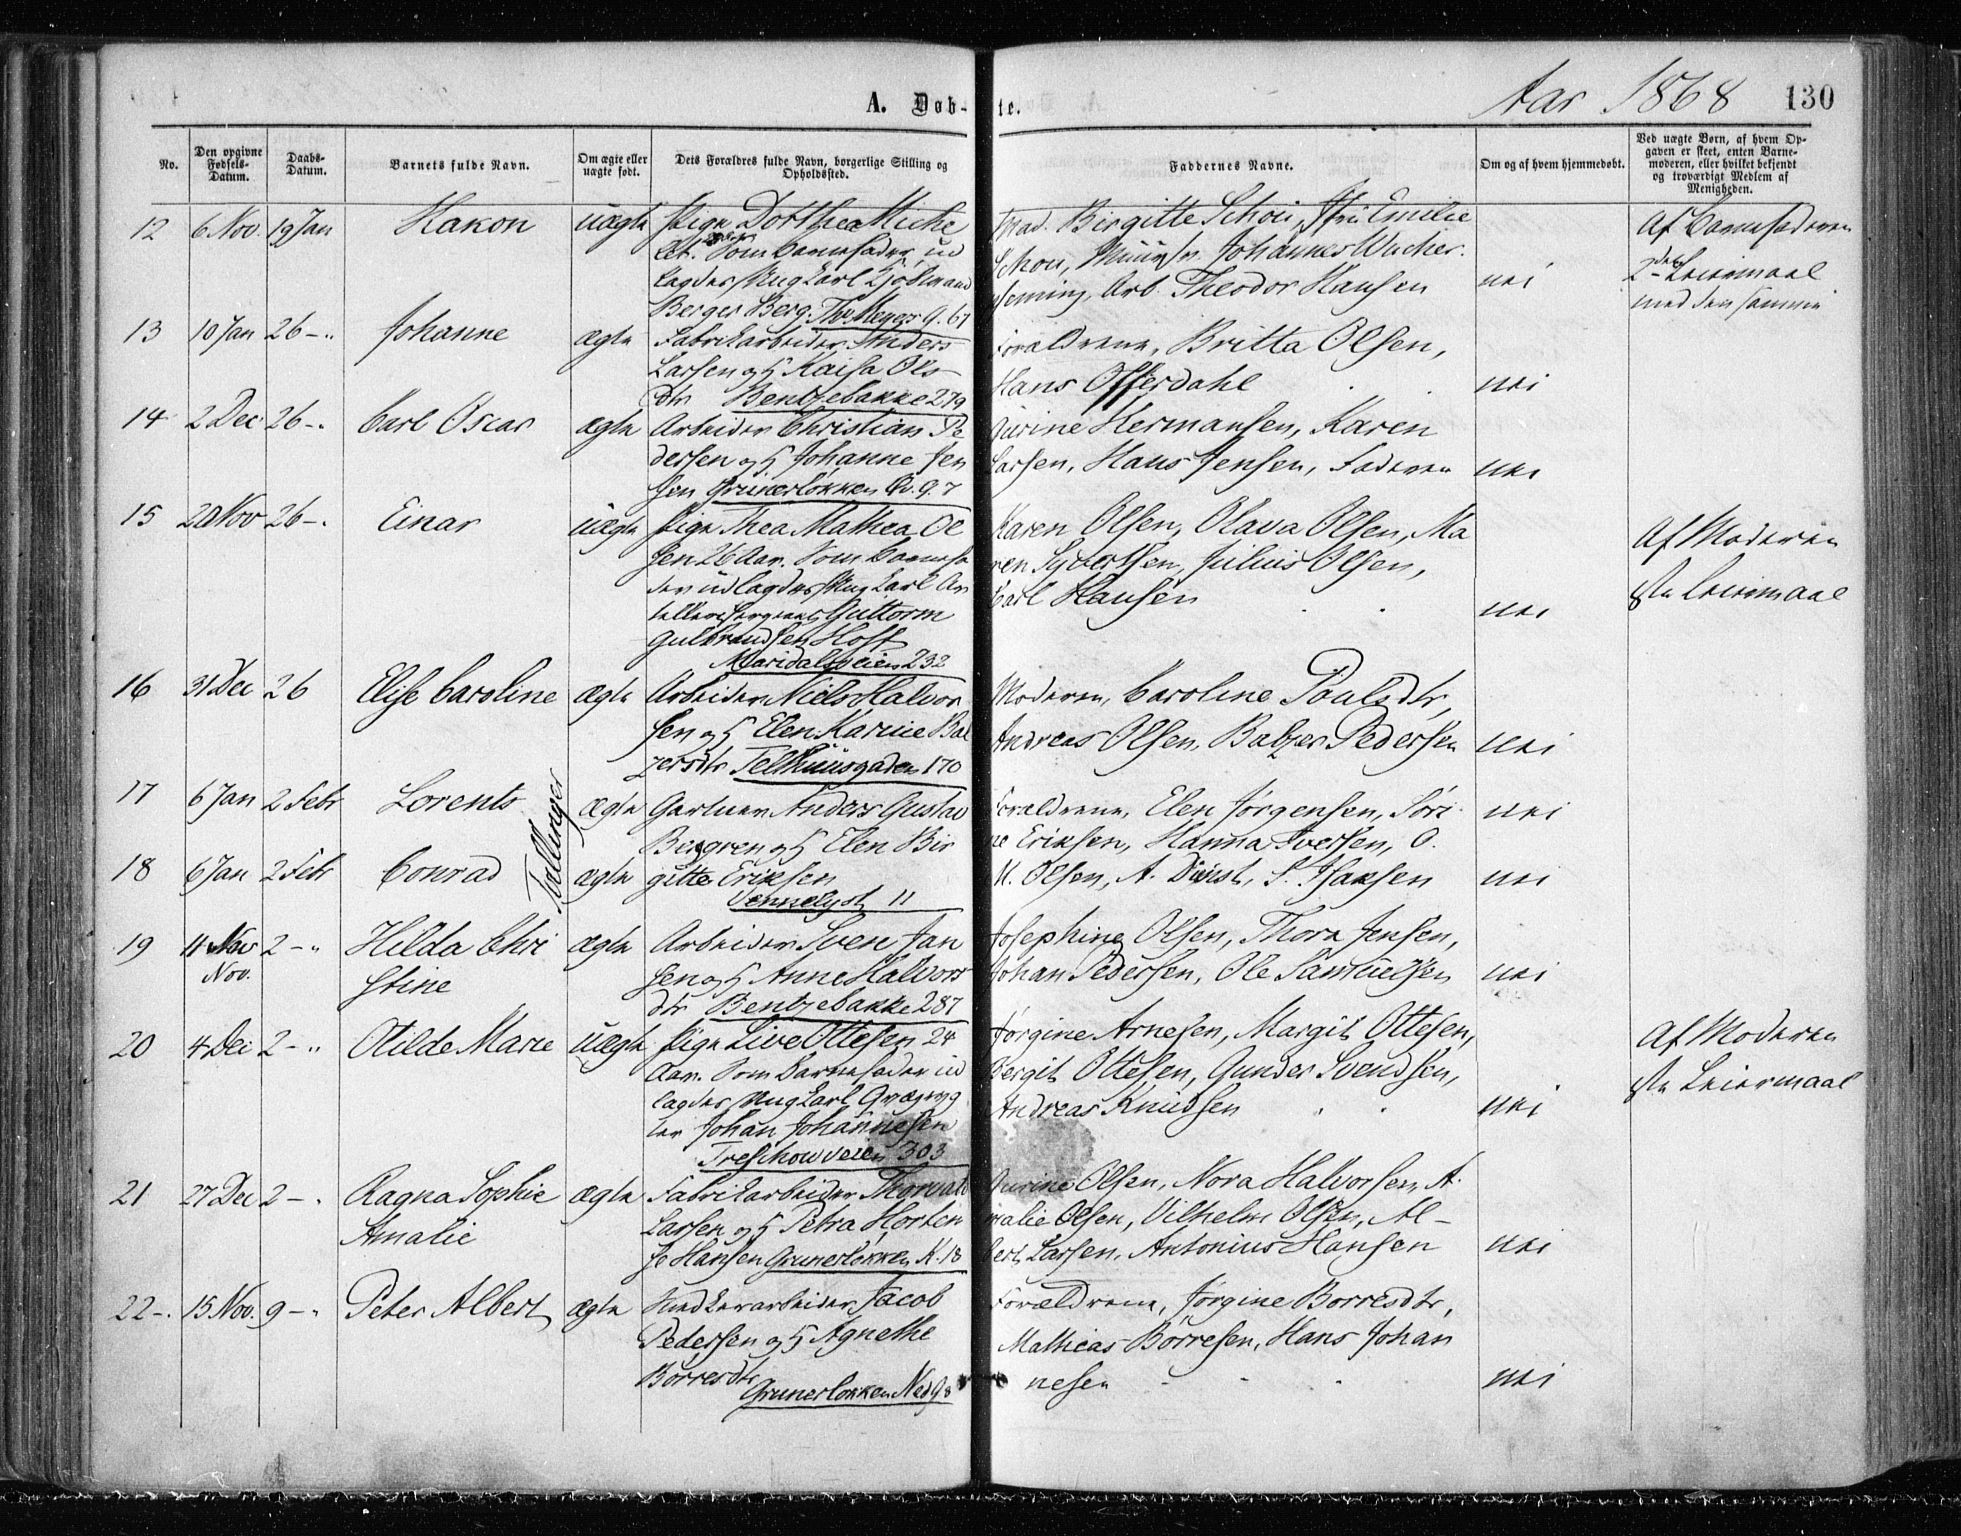 Aar 1868 130
A. Døb- te.
No.
Den opgivne Fødsels-Datum.
Daabs-Datum.
Barnets fulde Navn.
Om ægte eller uægte født.
Dets Forældres fulde Navn, borgerlige Stilling og Opholdssted.
Faddernes Navne.
Om og af hvem hjemmedøbt.
Ved uægte Børn, af hvem Opgaven er skeet, enten Barnemoderen, eller hvilket bekjendt og troværdigt Medlem af Menigheden.
12 6 Nov. 19 Jan Hakon uægte Pige Dorthea Miche
let. Som Barnefader ud
lagdes Ungkarl
Berger Berg. Ths Meyers G. 67
Mad. Birgitte Schou, Emilie
Schou, Johannes
Arb. Theodor Hansen nei
Af Barnefaderen
2det Leiermaal
med den samme
13 10 Jan 26 - " Johanne ægte Fabrikarbeider Anders
Larsen og H Kaisa Ols
dtr Bentsebakke 279
Forældrene, Britta Olsen,
Hans Offerdahl nei
14 2 Dec 26 - " Carl Oscar ægte Arbeider Christian Pe
dersen og H Johanne Jen
sen Grunerløkken Q. 9. 7
Gurine Hermansen, Karen
Larsen, Hans Jensen, Faderen nei
15 20 Nov 26 - " Einar uægte Pige Thea Mathea Ol
sen 26 Aar. Som Barnefa
der udlagdes Ungkarl Ar
Guttorm
Gulbrandsen Hoff
Maridalsveien 232
Karen Olsen, Olava Olsen, Ma
ren Syvertsen, Julius Olsen,
Carl Hansen nei
Af Moderen
1ste Leiermaal
16 31 Dec 26 Elise Caroline ægte Arbeider Niels Halvor
sen og H Elen Karine Bal
zersdtr Telthuusgaden 170
Moderen, Caroline Poulsdtr,
Andreas Olsen, Balzer Pedersen nei
17 6 Jan 2 Febr Lorents ægte Gartner Anders Gustav
Berggren og H Elen Bir
Tvillinger
Forældrene, Elen Jørgensen, Søri
ne Eriksen, Hanna Iversen, O. nei
18 6 Jan 2 Febr Conrad ægte gitte Eriksen
Vennelyst 11
M. Olsen, A. S. Isaksen nei
19 11 Nov 2 - " Hilda Chri ægte Arbeider Sven Jan
Nov. stine sen og H Anne Halvors
dtr Bentzebakke 287
Josephine Olsen, Thora Jensen,
Johan Pedersen, Ole Samuelsen nei
20 4 Dec 2 - " Otilde Marie uægte Pige Live Ottesen 24
Aar. Som Barnefader ud
lagdes Ungkarl
Johan Johannesen
Treschowveien 303
Jørgine Arnesen, Margit Ottesen,
Bergit Ottesen, Gunder Svendsen,
Andreas Knudsen nei
Af Moderen
1ste Leiermaal
21 27 Dec 2 - " Ragna Sophie ægte Fabrikarbeider Thorvald
Amalie Larsen og H Petra Horten
se Hansen Grunerløkken K. 18
Gurine Olsen, Nora Halvorsen, A
malie Olsen, Vilhelm Olsen, Al-
bert Larsen, Antonius Hansen nei
22 - . 15 Nov. 9 - " Peter Albert ægte Snedkerarbeider Jacob
Pedersen og H Agnethe
Børresdtr
Grunerløkken Ned 98
Forældrene, Jørgine Børresdtr,
Mathias Børresen, Hans Johan
nesen nei